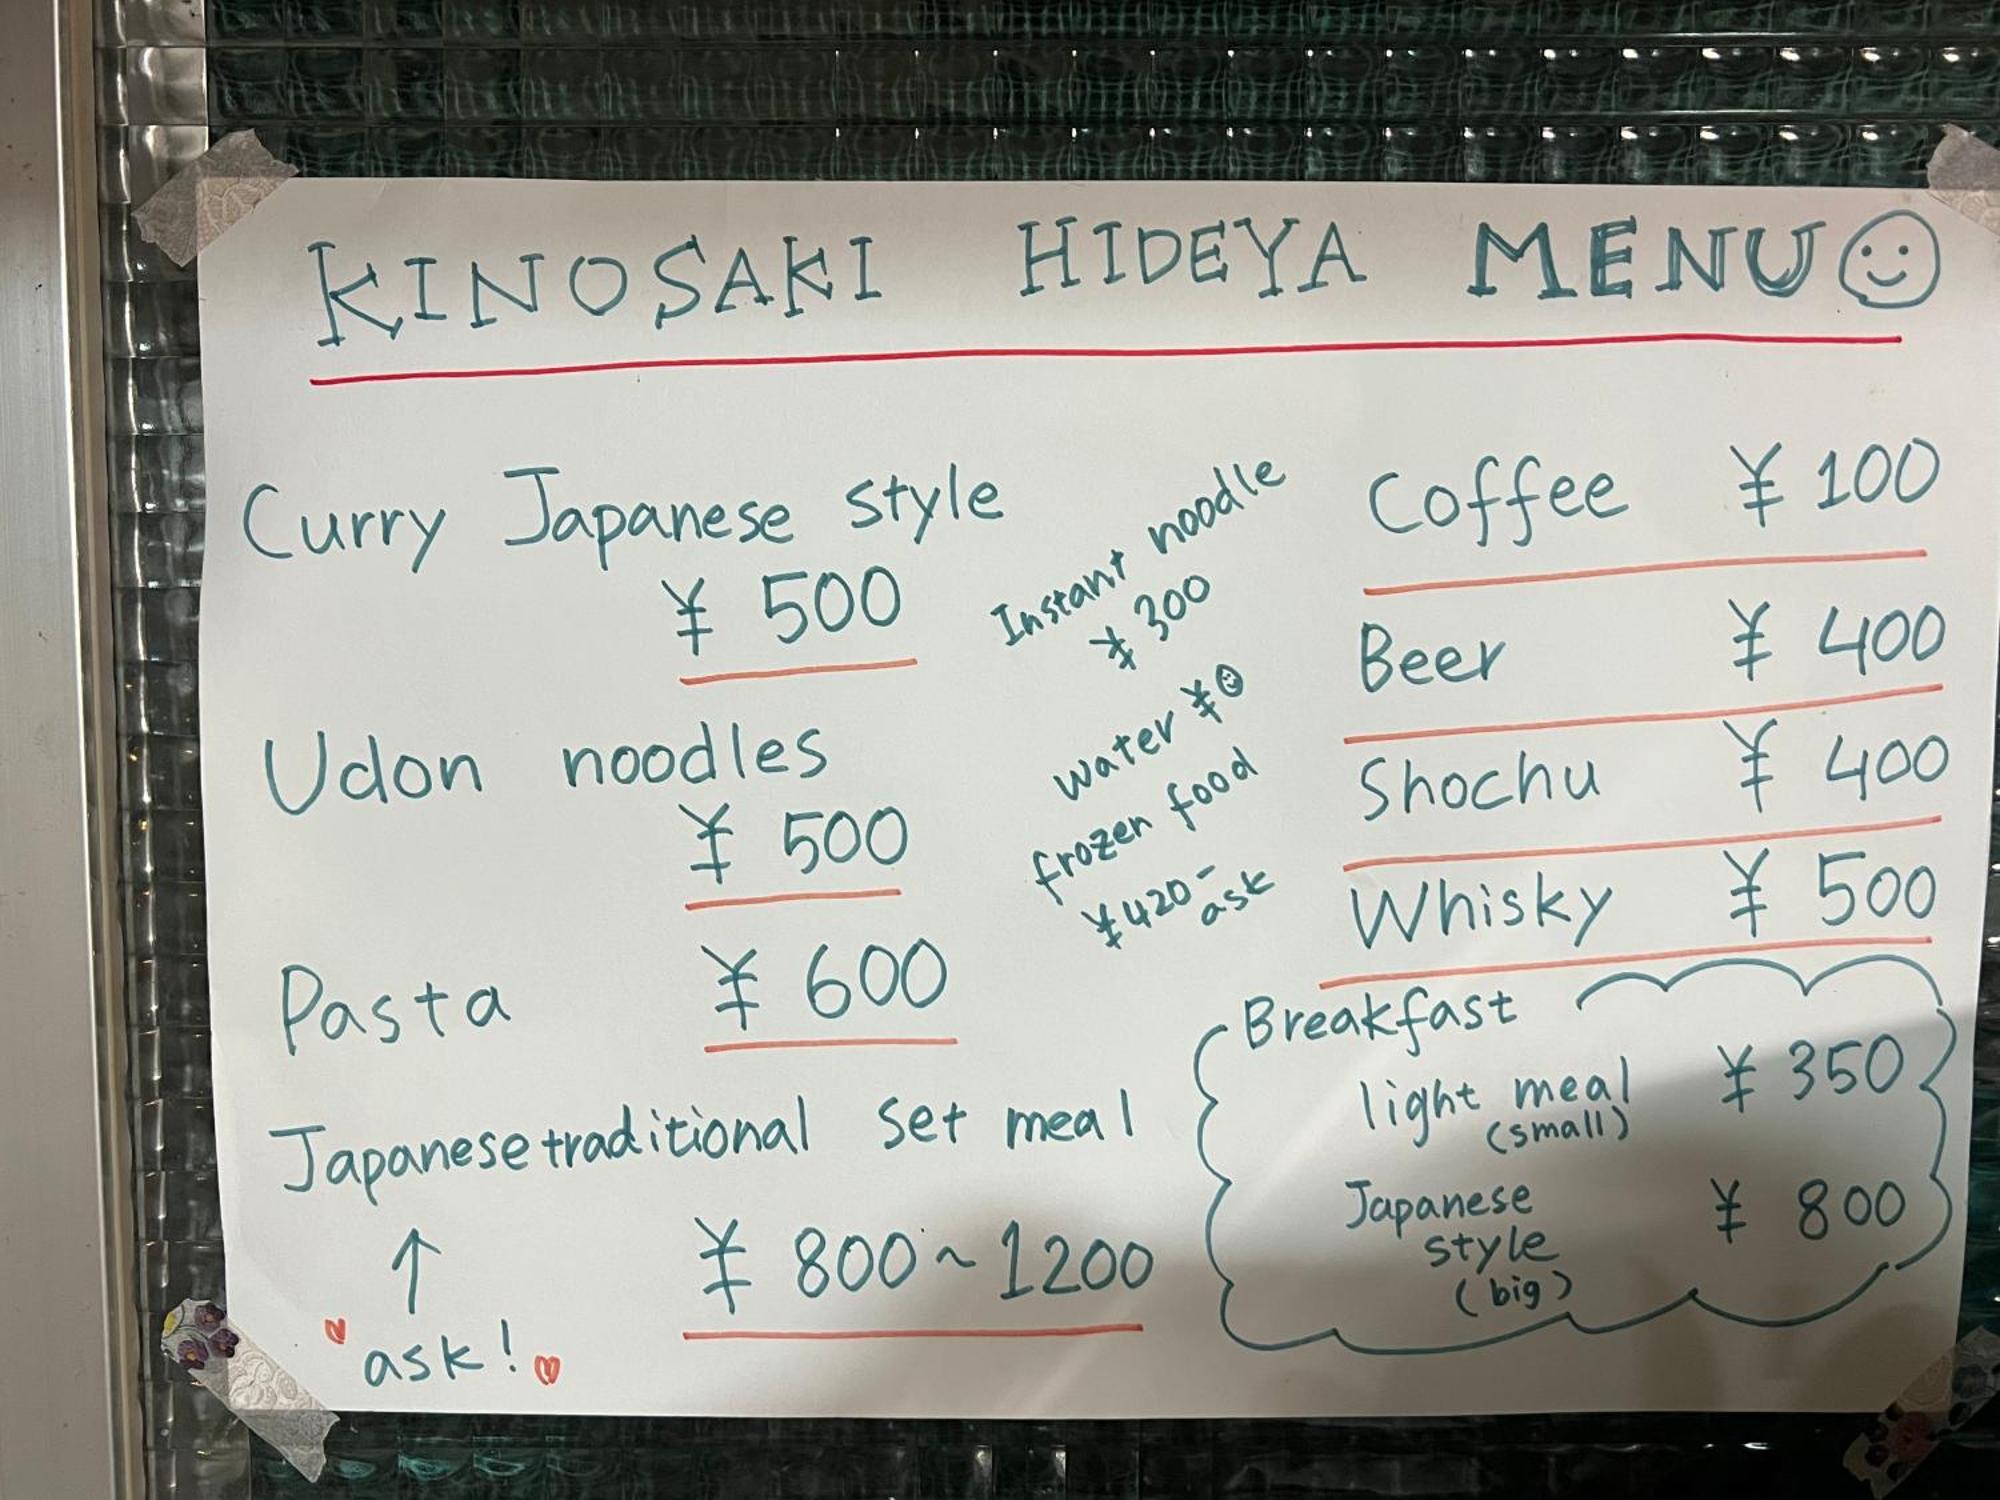 KINOSAKI HIDEYA MENU
Curry Japanese style
¥ 500
Udon noodles
¥ 500
Pasta ¥ 600
Japanese traditional set meal
↑
ask!
¥ 800~1200
Instant noodle
¥ 300
water ¥0
frozen food
¥420-
ask
Coffee ¥ 100
Beer ¥ 400
Shochu ¥ 400
Whisky ¥ 500
Breakfast
light meal ¥ 350
(small)
Japanese ¥ 800
style
(big)